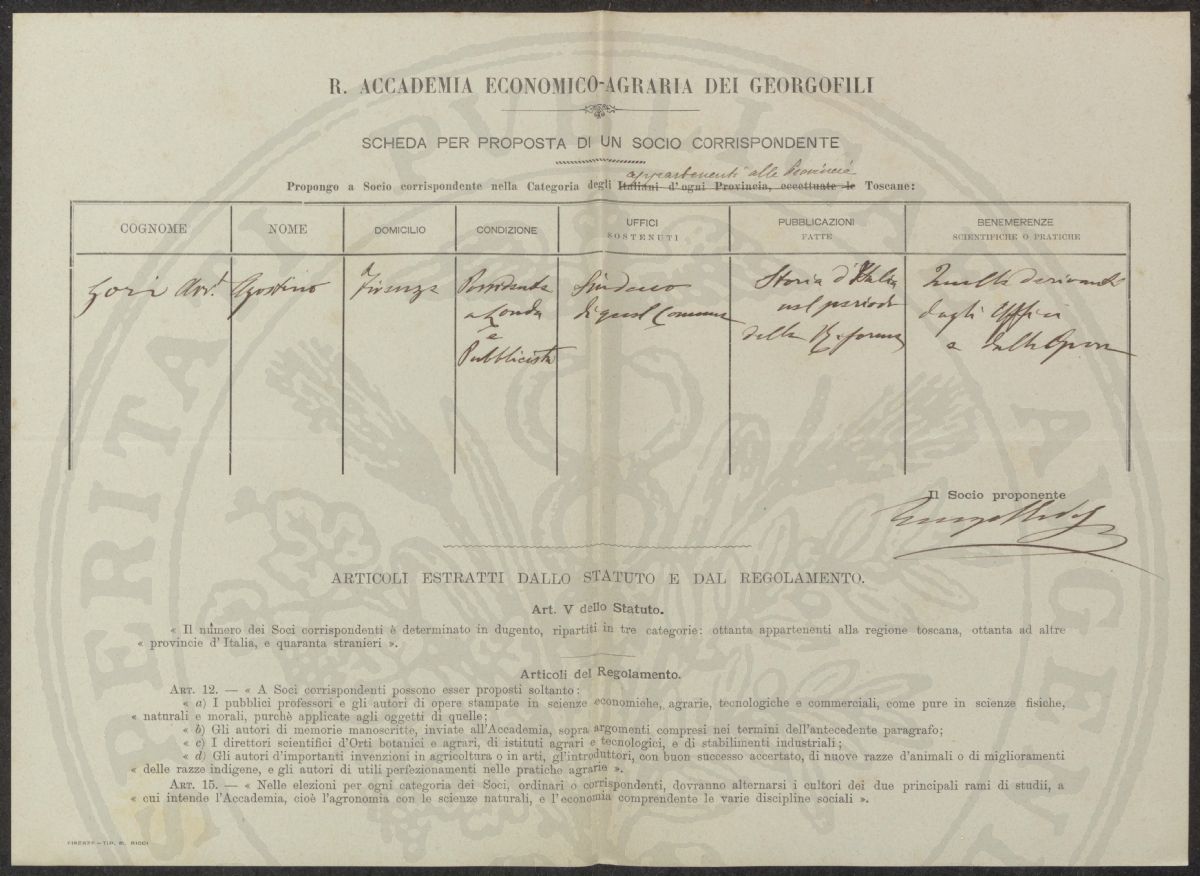 R. ACCADEMIA ECONOMICO-AGRARIA DEI GEORGOFILI
SCHEDA PER PROPOSTA DI UN SOCIO CORRISPONDENTE
appartenenti alle Provincie
Propongo a Socio corrispondente nella Categoria degli Italiani d'ogni Provincia, eccettuate le Toscane:
COGNOME NOME DOMICILIO CONDIZIONE UFFICI SOSTENUTI PUBBLICAZIONI FATTE BENEMERENZE SCIENTIFICHE O PRATICHE
Gori Avv. Agostino Firenze Possidente Sindaco Storia d'Italia Quelle derivanti
a Londa di quel Comune nel periodo dagli Uffici
e della Riforma e dalle Opere
Pubblicista
Il Socio proponente
ARTICOLI ESTRATTI DALLO STATUTO E DAL REGOLAMENTO.
Art. V dello Statuto.
« Il numero dei Soci corrispondenti è determinato in dugento, ripartiti in tre categorie: ottanta appartenenti alla regione toscana, ottanta ad altre
« provincie d'Italia, e quaranta stranieri ».
Articoli del Regolamento.
ART. 12. — « A Soci corrispondenti possono esser proposti soltanto:
« a) I pubblici professori e gli autori di opere stampate in scienze economiche, agrarie, tecnologiche e commerciali, come pure in scienze fisiche,
« naturali e morali, purchè applicate agli oggetti di quelle;
« b) Gli autori di memorie manoscritte, inviate all'Accademia, sopra argomenti compresi nei termini dell'antecedente paragrafo;
« c) I direttori scientifici d'Orti botanici e agrari, di istituti agrari e tecnologici, e di stabilimenti industriali;
« d) Gli autori d'importanti invenzioni in agricoltura o in arti, gl'introduttori, con buon successo accertato, di nuove razze d'animali o di miglioramenti
« delle razze indigene, e gli autori di utili perfezionamenti nelle pratiche agrarie ».
ART. 15. — « Nelle elezioni per ogni categoria dei Soci, ordinari o corrispondenti, dovranno alternarsi i cultori dei due principali rami di studii, a
« cui intende l'Accademia, cioè l'agronomia con le scienze naturali, e l'economia comprendente le varie discipline sociali ».
FIRENZE—TIP. M. RICCI